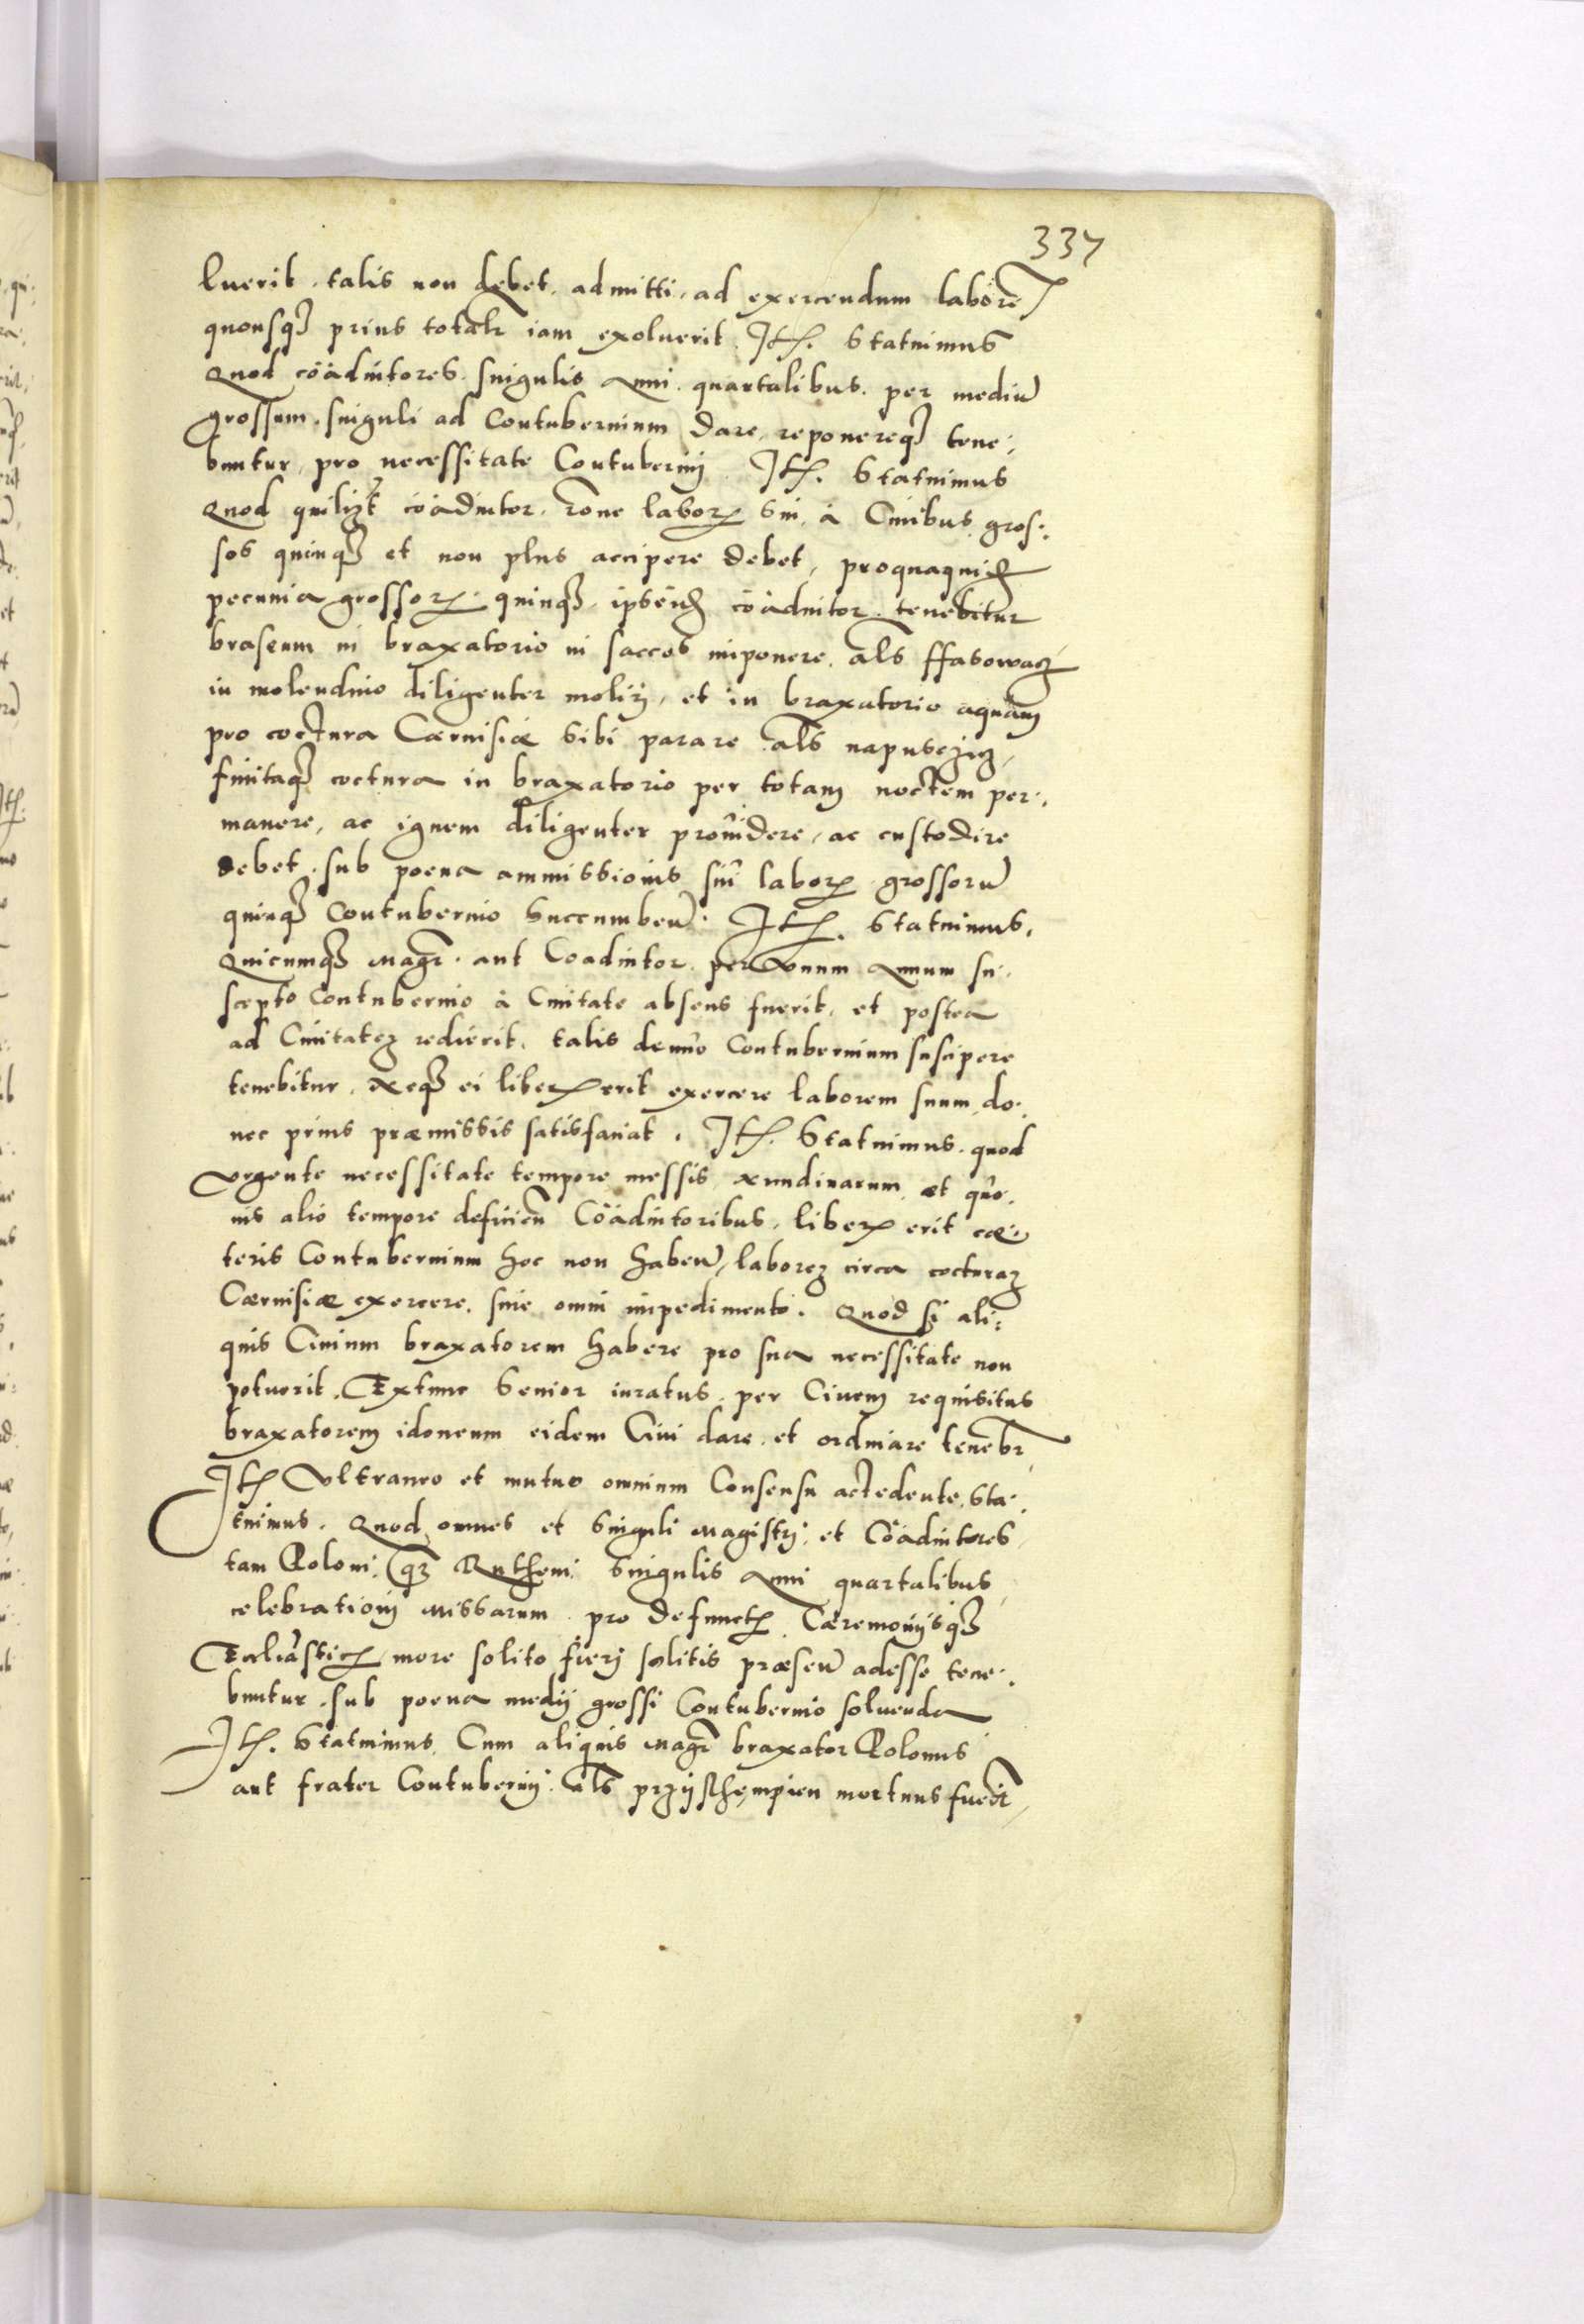 337
luerit. talis non debet. admitti, ad exercendum labore
quousq prius totalr iam exoluerit. Ite. Statuimus
Quod coadiutores. singulis Anni. quartalibus. per mediu
grossum. singuli ad Contubernium dare, reponereq tene:
buntur, pro necessitate Contubernij. Ite. Statuimus
Quod quilizt coadiutor. rone labor sui, à Ciuibus gros:
sos quinq et non plus accipere debet, proquaquid
pecunia grossor. quinq, ipseid coadiutor. tenebitur
braseum in braxatorio in saccos imponere. als ffasowacz
in molendino diligenter molirj, et in braxatorio aquam
pro coctura Cæruisiæ sibi parare als napusczicz,
finitaq coctura in braxatorio per totam noctem per:
manere, ac ignem diligenter prouidere, ac custodire
debet. sub poena ammissionis sui labor grossoru
quinq Contubernio succumben. Ite. Statuimus.
Quicumq magr. aut Coadiutor. per Vnum Annum su:
scepto Contubernio à Ciuitate absens fuerit. et postea
ad Ciuitatez redierit. talis denuo Contubernium suscipere
tenebitur. Neq ei liber erit exercere laborem suum, do:
nec prius præmissis satisfaciat. Ite. Statuimus. quod
Vrgente necessitate tempore messis Nundinarum et quo:
uis alio tempore deficien Coadiutoribus. liber erit cæ:
teris Contubernium hoc non haben, laborez circa cocturaz
Cæruisiæ exercere. sine omni impedimento. Quod si ali:
quis Ciuium braxatorem habere pro sua necessitate non
potuerit. Extunc Senior iuratus. per Ciuem requisitus
braxatorem idoneum eidem Ciui dare. et ordinare tenebr
Ite Vltraneo et mutuo omnium Consensu accedente. Sta:
tuimus. Quod omnes et Singuli Magistrj. et Coadiutores
tam Poloni. qz Rutheni. Singulis Anni quartalibus
celebrationj Missarum. pro defunct. Cæremonijsq
Eccliastic more solito fierj solitis præsen adesse tene:
buntur. sub poena medij grossi Contubernio soluenda
Ite. Statuimus. Cum aliquis Magr braxator Polonus
aut frater Contubernij. als przijsthempien mortuus fuerit